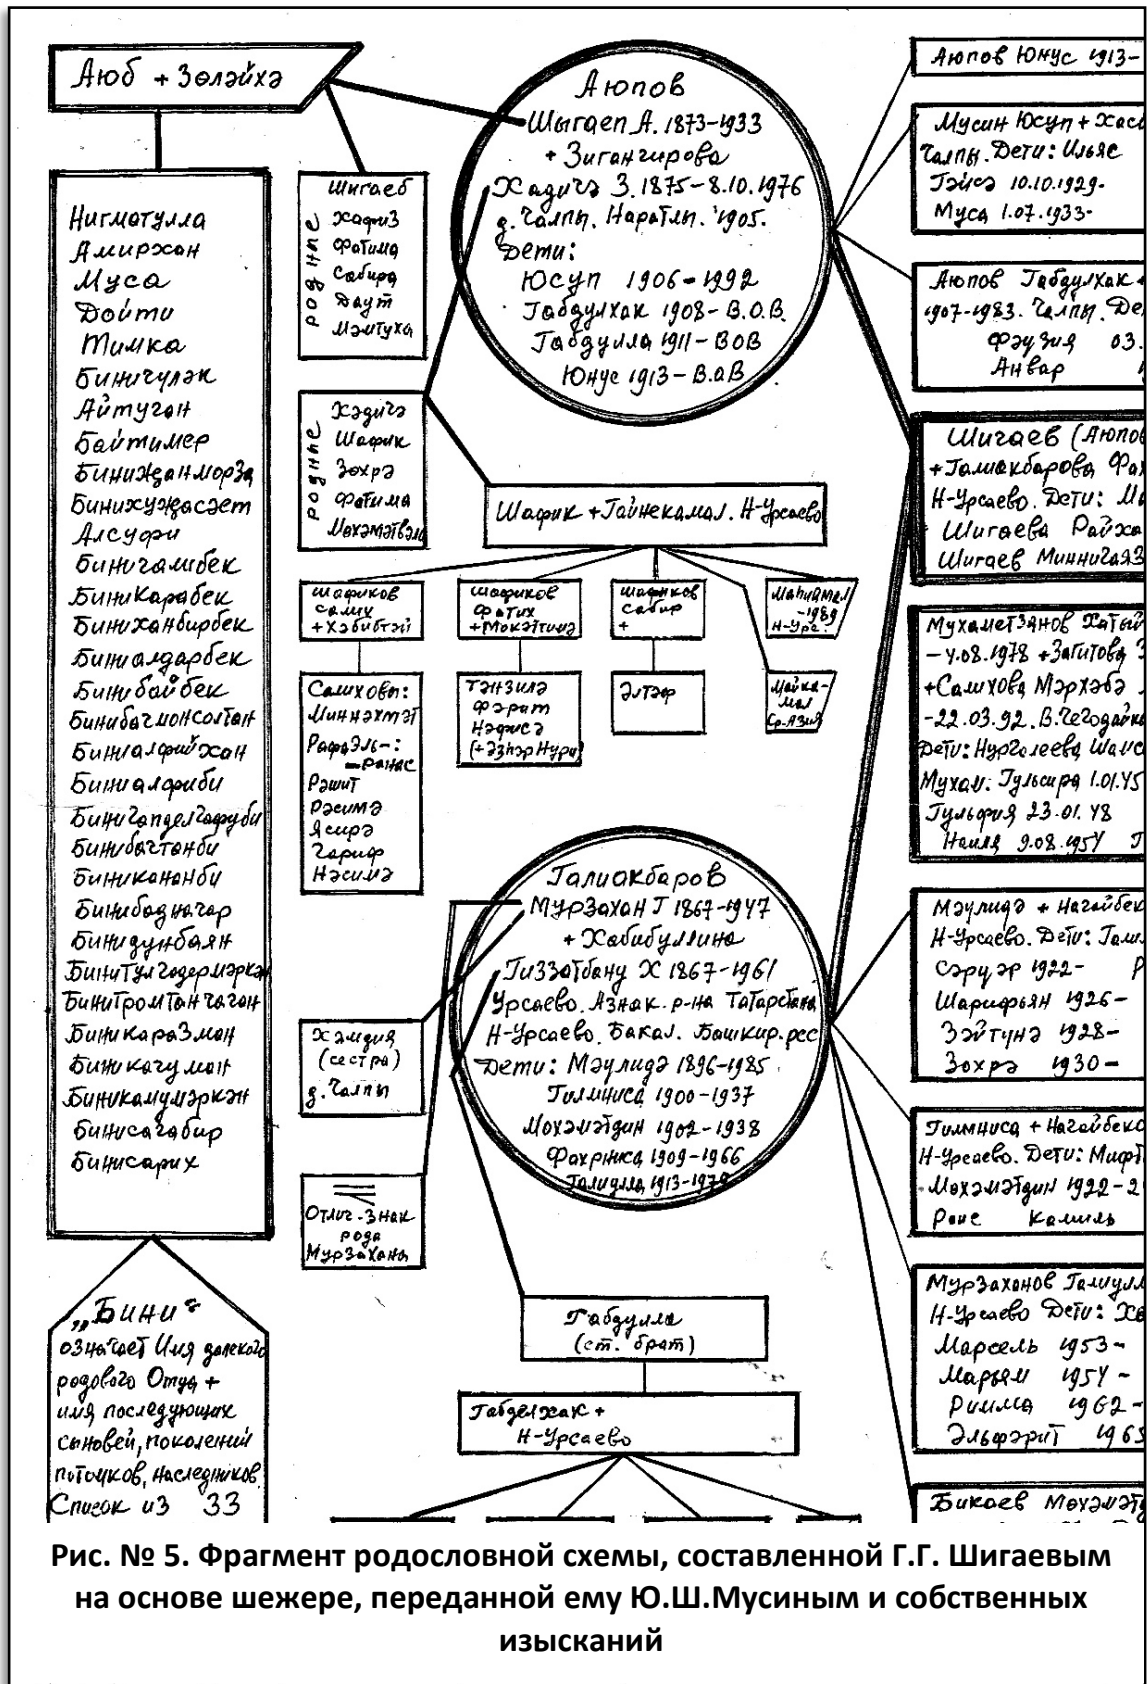 Аюб + Зөләйхә
Нигматулла
Амирхан
Муса
Дойти
Тимка
Биничуләк
Айтуган
Байтимер
Биниҗанморза
Бинихуҗасәет
Алсуфи
Бинигалибек
Биникарабек
Биниханбирбек
Биниалдарбек
Бинибайбек
Биниалфийхан
Биниалфиби
Бинибачтанби
Биникананби
Бинидунбаян
Биникаразман
Биникачуман
Бинисагабир
Бинисарих
„Бини“
означает Имя далекого
родового Отца +
имя последующих
сыновей, поколений
потомков, наследников.
Список из 33
родные
Шигаев
Хафиз
Фатима
Сабира
Даут
Мәмтуха
родные
Хәдичә
Шафик
Зөхрә
Фатима
Мөхәмәтвәли
Аюпов
Шыгаеп А. 1873-1933
+ Зигангирова
Хадичә З. 1875-8.10.1976
д. Чалпы. Наратлы. 1905.
Дети:
Юсуп 1906-1992
Габдулхак 1908- В.О.В.
Габдулла 1911- ВОВ
Юнус 1913- В.о.В
Шафик + Гайнекамал. Н-Урсаево
Шафиков
Салих
+ Хәбибтәй
Салиховы:
Миннәхмәт
Рафаэль-:
-Ранас
Рәшит
Рәсимә
Ясирә
Гариф
Нәсимә
Шафиков
Фатих
Тәнзилә
Фәрит
Нәфисә
(+Әзһәр Нури)
Шафиков
Сабир
+
Әлтәф
Маһиямал
-1989
Н-Урс.
Майка-
мал
Ср. Азия
Галиакбаров
Мурзахан Г 1867-1947
+ Хабибуллина
Гиззатбану Х 1867-1961
Урсаево. Азнак. р-на Татарстана
Н-Урсаево. Бакал. Башкир. рес
Дети: Мәүлидә 1896-1985
Гилмниса 1900-1937
Мөхәмәтдин 1902-1938
Фахрниса 1909-1966
Галиулла 1913-1979
Хәмдия
(сестра)
д. Чалпы
Отлич-знак
рода
Мурзахана
Габдулла
(ст. брат)
Габделхак +
Н-Урсаево
Аюпов Юнус 1913-
Мусин Юсуп + Хас
Чалпы. Дети: Ильяс
Гәйсә 10.10.1929-
Муса 1.07.1933-
Аюпов Габдулхак
1907-1983. Чалпы. Де
Фәузия 03.
Анвар
Шигаев (Аюпов
+ Галиакбарова Фах
Н-Урсаево. Дети: Ми
Шигаева Райха
Шигаев Миннигаяз
Мухаметзянов Хатый
- 4.08.1978 + Загитова
+ Салихова Мәрхәбә
-22.03.92. В. Чегодайка
Дети: Нургалеева
Мухам: Гульсира 1.01.45
Гульфия 23.01.48
Наиля 9.08.1954 Г
Мәүлидә + Нагайбек
Н-Урсаево. Дети: Гали
Сәрүәр 1922-
Шарифьян 1926-
Зәйтүнә 1928-
Зөхрә 1930-
Гилмниса + Нагайбеко
Н-Урсаево. Дети: Мифт
Мөхәмәтдин 1922-2
Раис Камиль
Мурзаханов Галиулл
Н-Урсаево Дети: Хә
Марсель 1953-
Марьям 1954-
Римма 1962-
Эльфәрит 1965
Бикаев Мөхәмәтд
Рис. № 5. Фрагмент родословной схемы, составленной Г.Г. Шигаевым
на основе шежере, переданной ему Ю.Ш.Мусиным и собственных
изысканий